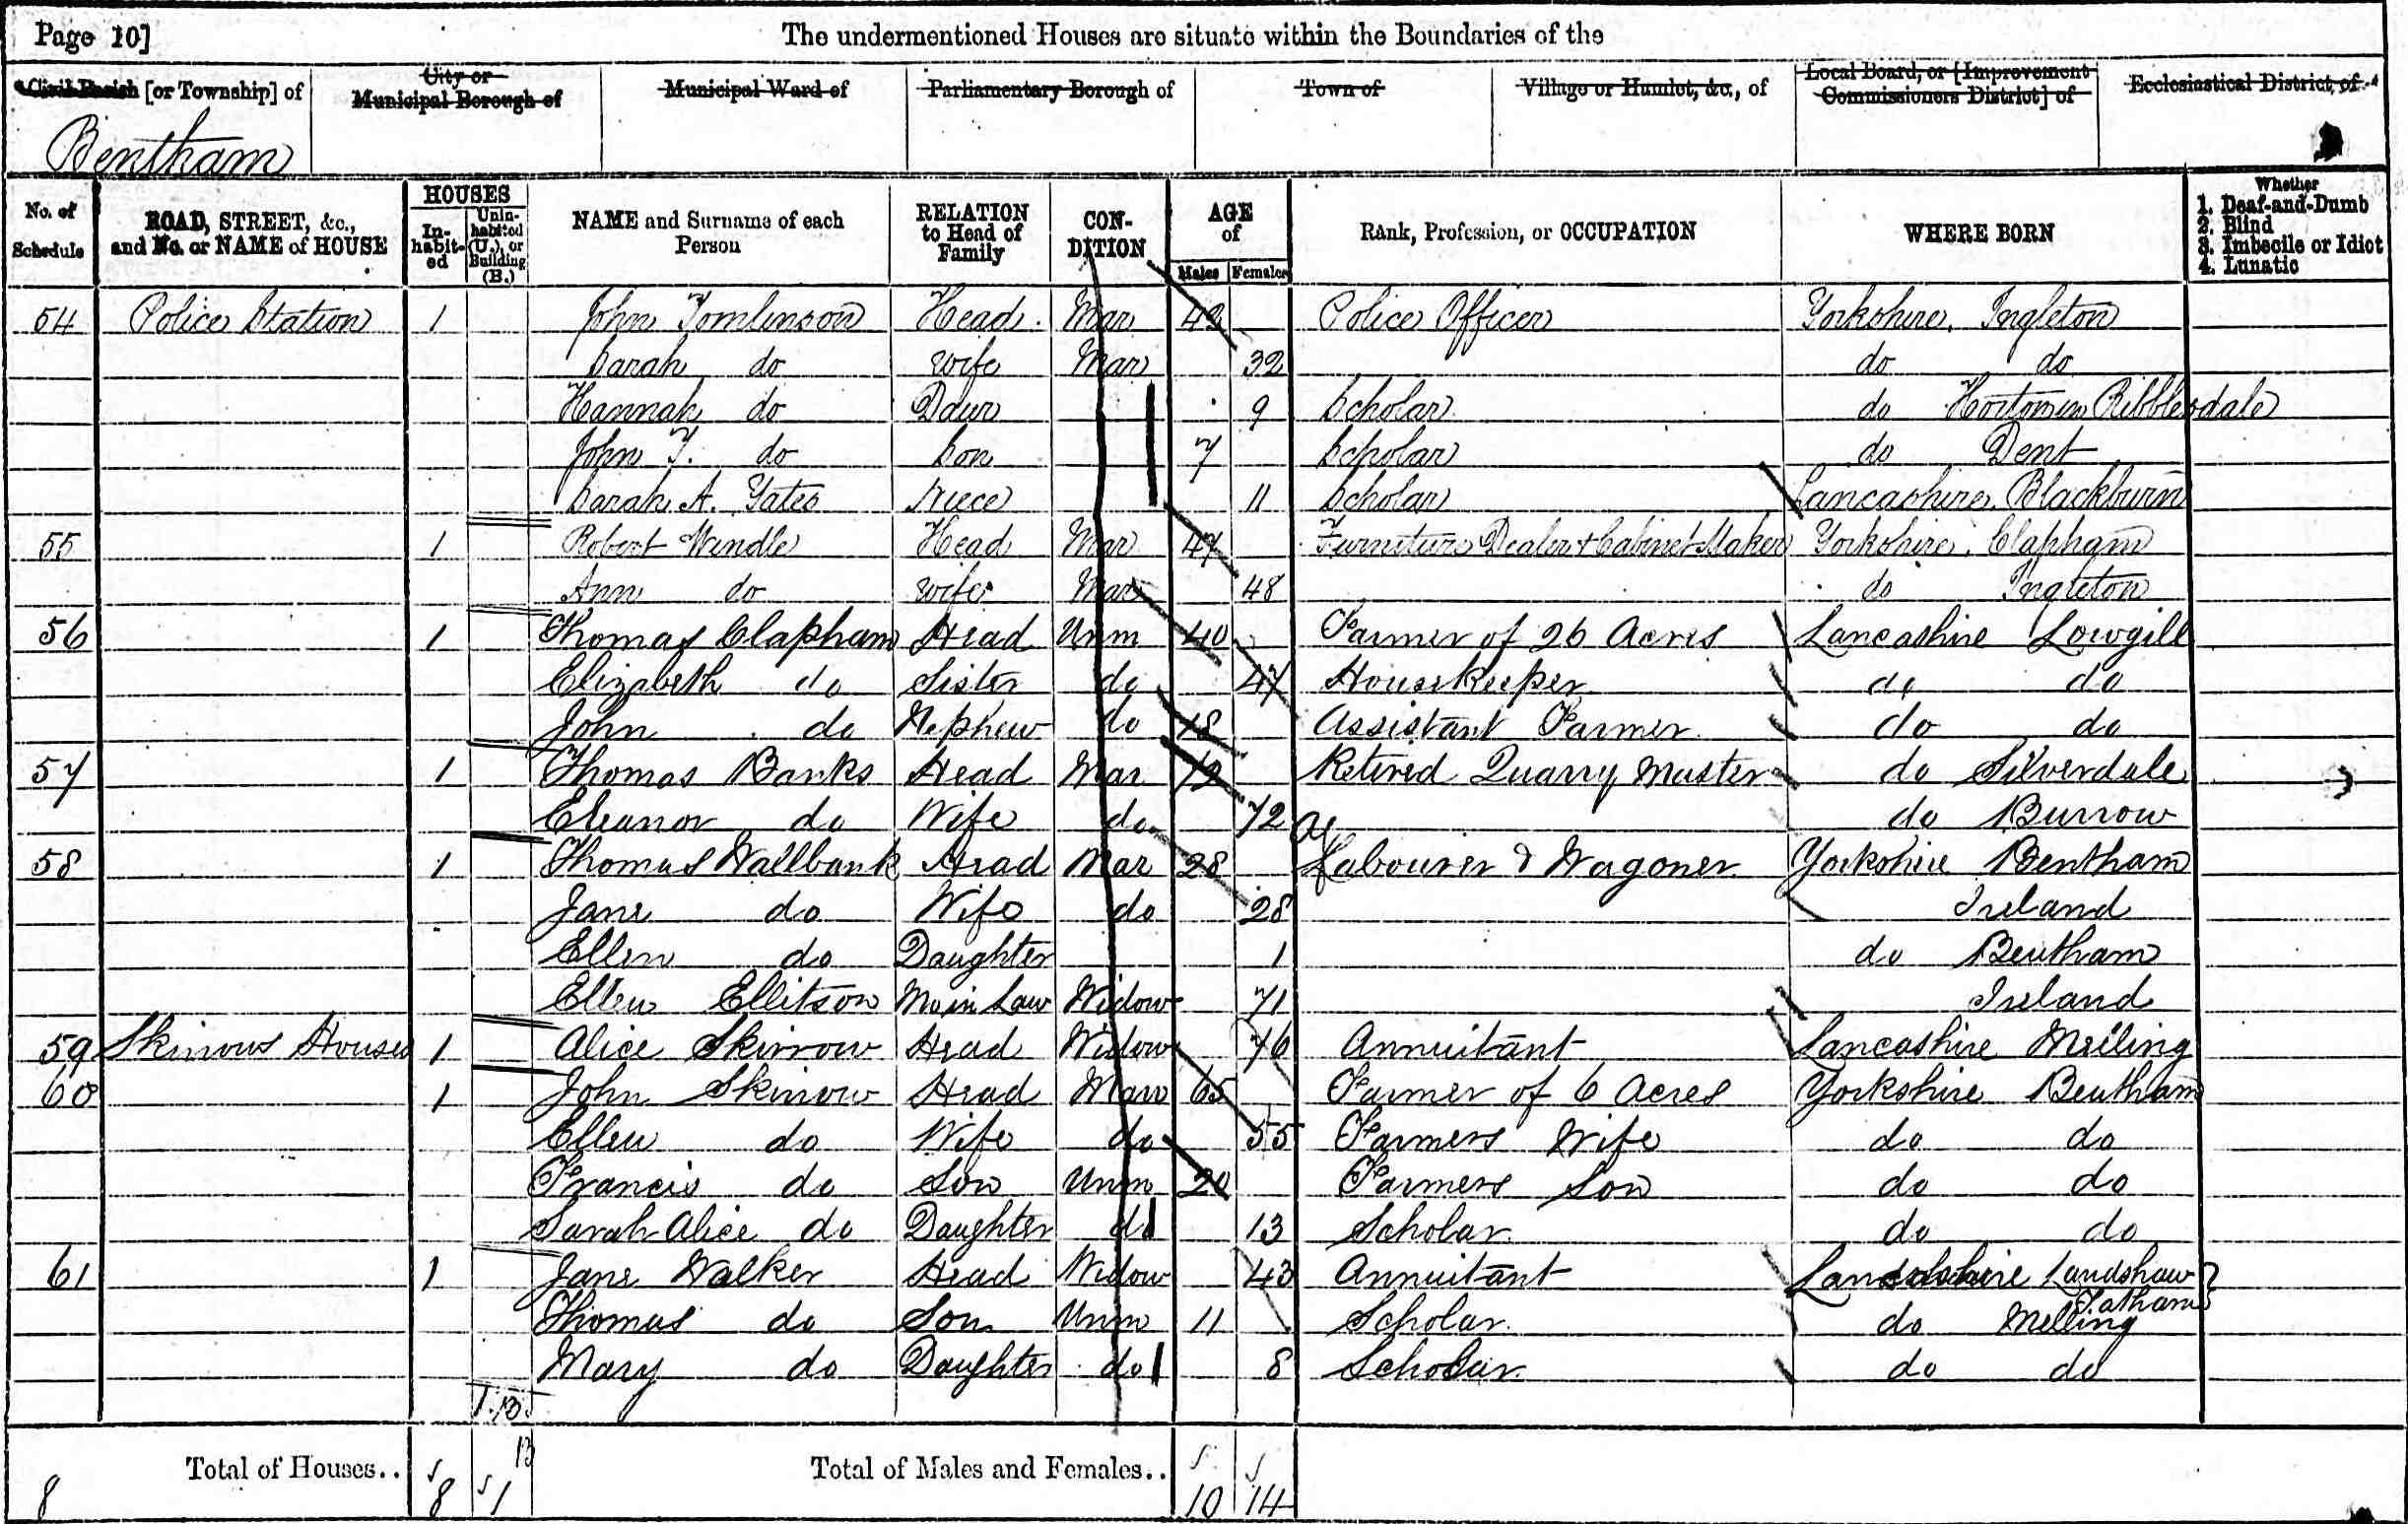 Page 10] The undermentioned Houses are situate within the Boundaries of the
Civil Parish [or Township] of City or Municipal Borough of Municipal Ward of Parliamentary Borough of Town of Village or Hamlet, &c., of Local Board, or [Improvement Commissioners District] of Ecclesiastical District, of
Bentham
No. of Schedule ROAD, STREET, &c., and No. or NAME of HOUSE HOUSES In-habit-ed Unin-habited (U.), or Building (B.) NAME and Surname of each Person RELATION to Head of Family CON-DITION AGE of Males Females Rank, Profession, or OCCUPATION WHERE BORN Whether 1. Deaf-and-Dumb 2. Blind 3. Imbecile or Idiot 4. Lunatic
54 Police Station 1 John Tomlinson Head Mar 42 Police Officer Yorkshire, Ingleton
Sarah do Wife Mar 32 do do
Hannah do Daur 9 Scholar do Horton in Ribblesdale
John T. do Son 7 Scholar do Dent
Sarah A. Yates Niece 11 Scholar Lancashire, Blackburn
55 1 Robert Windle Head Mar 47 Furniture Dealer & Cabinet Maker Yorkshire, Clapham
Ann do Wife Mar 48 do Ingleton
56 1 Thomas Clapham Head Unm 40 Farmer of 26 Acres Lancashire Lowgill
Elizabeth do Sister do 47 Housekeeper do do
John do Nephew do 18 Assistant Farmer do do
57 1 Thomas Banks Head Mar Retired Quarry Master do Silverdale
Eleanor do Wife do 72 do Burrow
58 1 Thomas Wallbank Head Mar 28 Ag Labourer & Wagoner Yorkshire Bentham
Jane do Wife do 28 Ireland
Ellen do Daughter 1 do Bentham
Ellen Ellitson Mo in Law Widow 71 Ireland
59 Skirrows Houses 1 Alice Skirrow Head Widow 76 Annuitant Lancashire Melling
60 1 John Skirrow Head Marr 65 Farmer of 6 Acres Yorkshire Bentham
Ellen do Wife do 55 Farmers Wife do do
Francis do Son Unm 20 Farmers Son do do
Sarah Alice do Daughter do 13 Scholar do do
61 1 Jane Walker Head Widow 43 Annuitant Lancashire Landshaw Tatham }
Thomas do Son Unm 11 Scholar do Melling
Mary do Daughter do 8 Scholar do do
1.B.
13
8 Total of Houses.. 8 1 Total of Males and Females.. 10 14